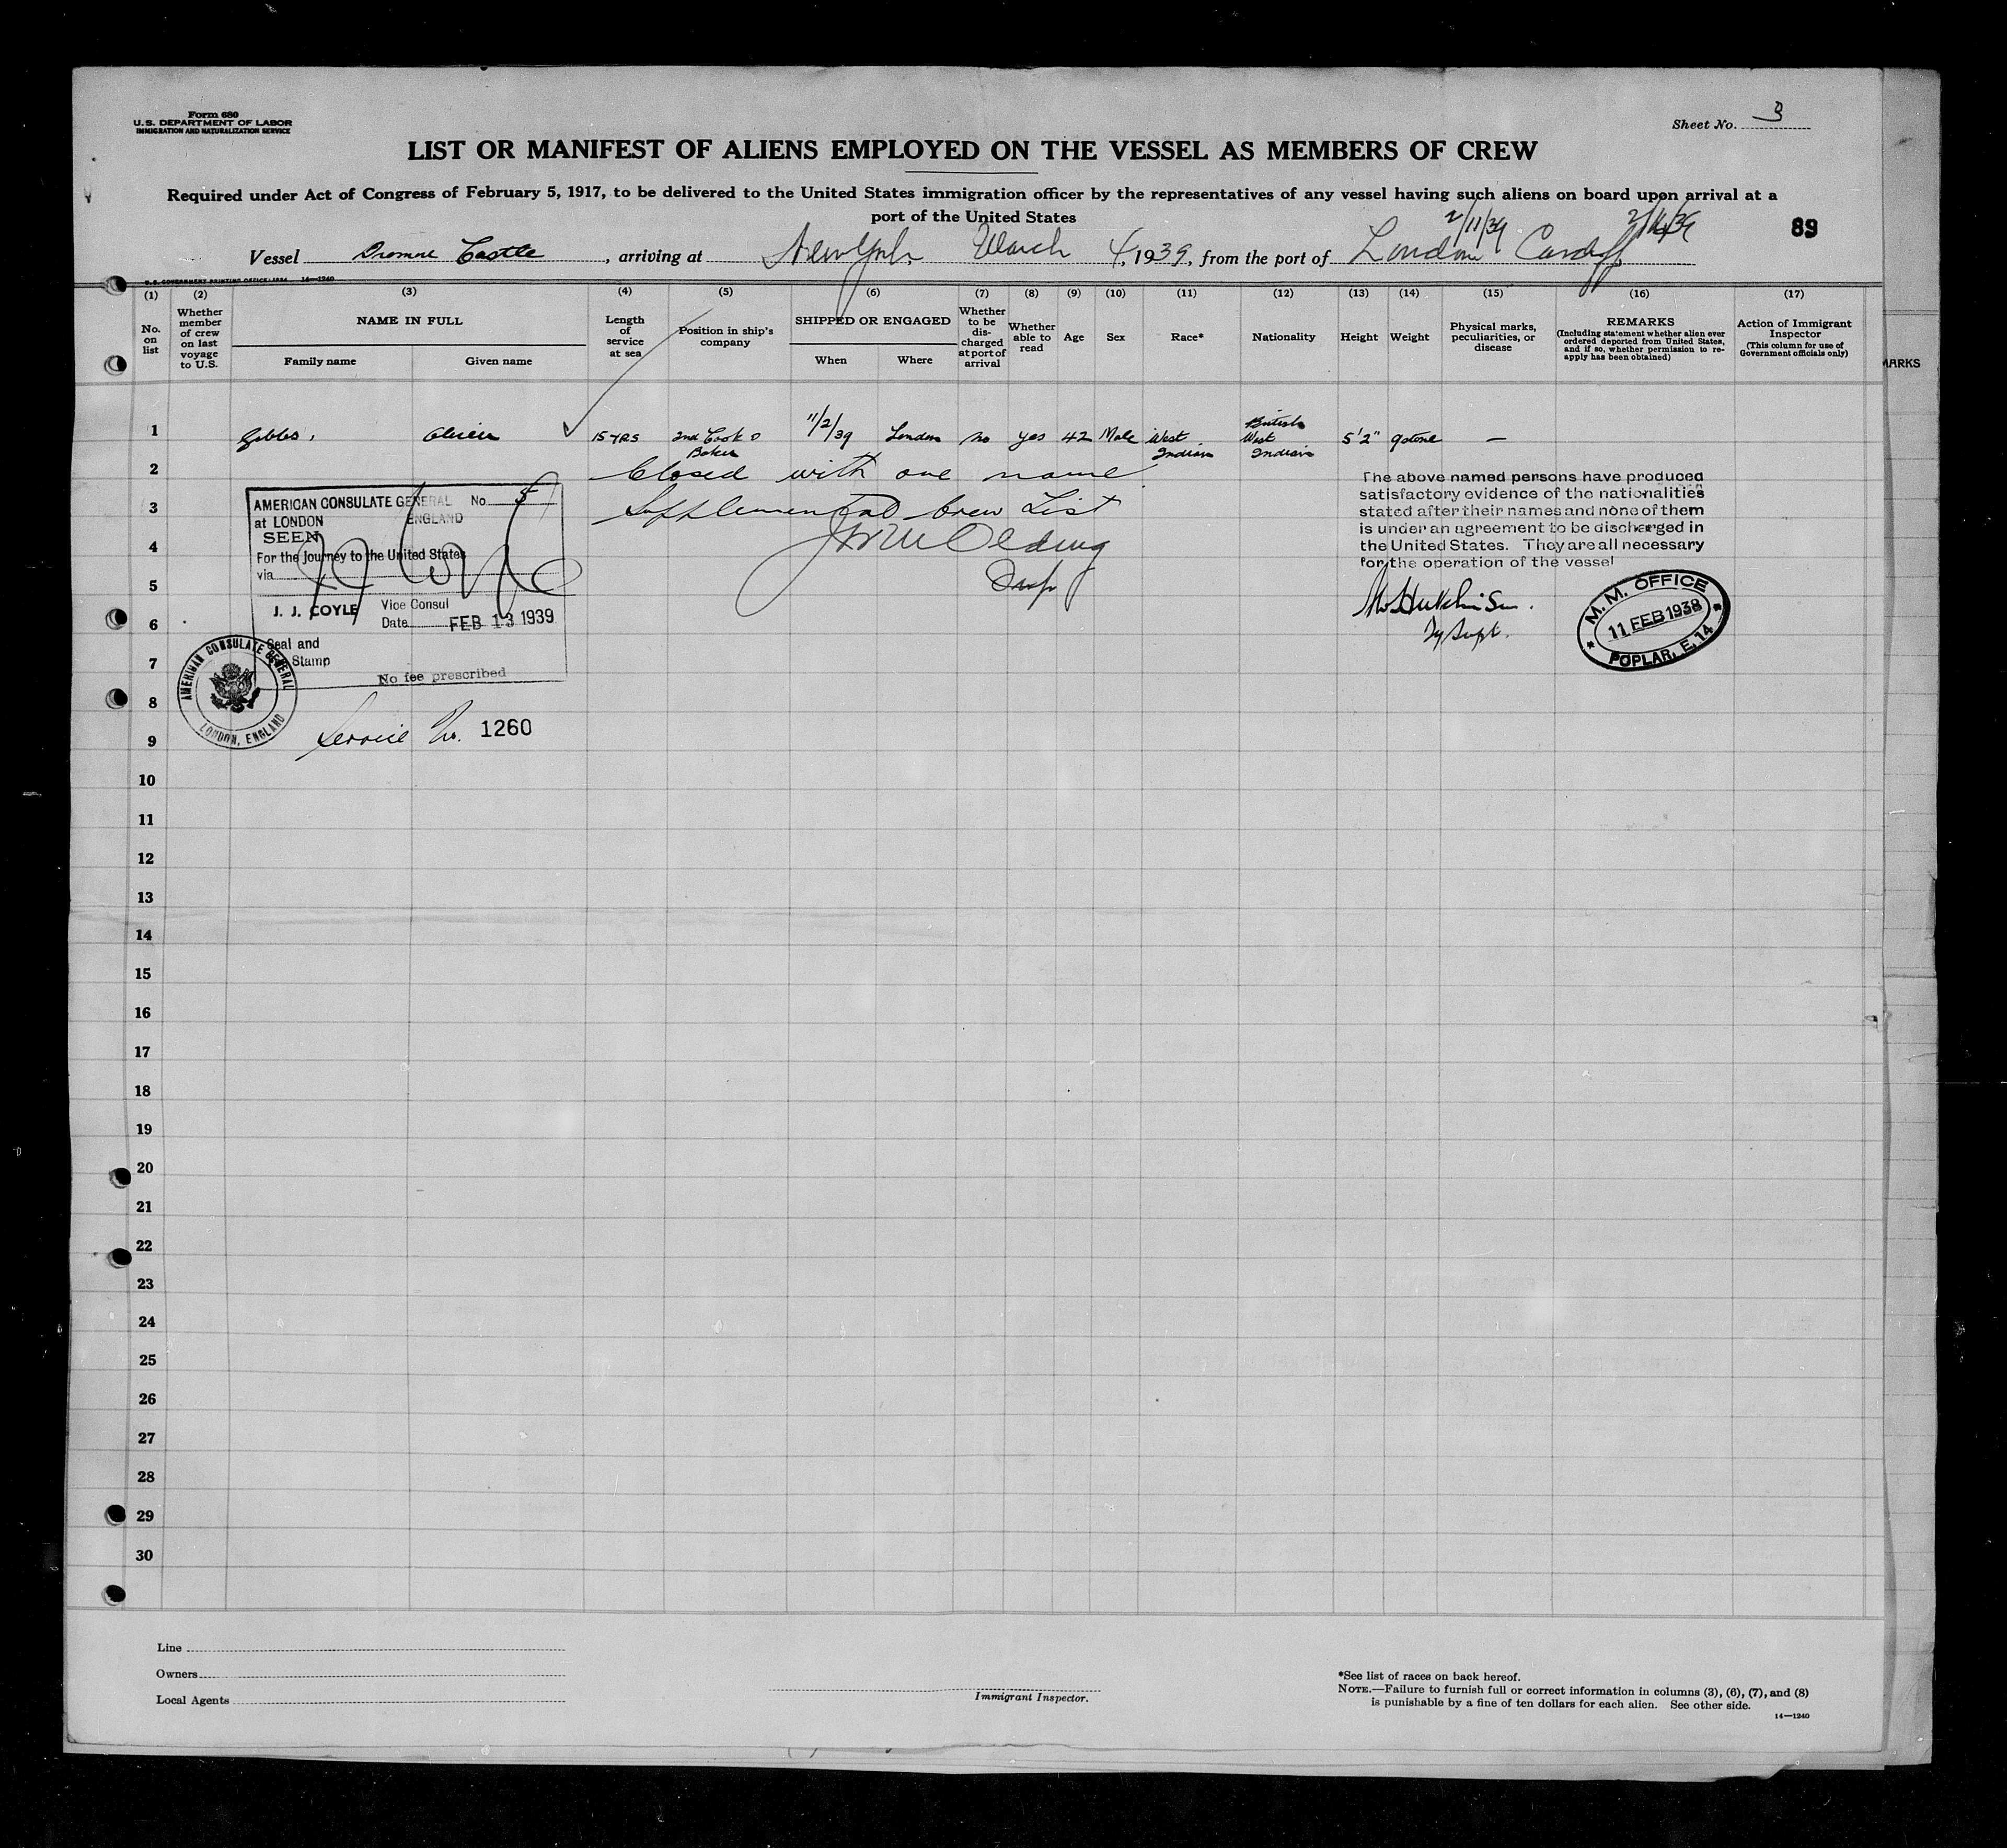 Form 680
U.S. DEPARTMENT OF LABOR
IMMIGRATION AND NATURALIZATION SERVICE
Sheet No. 3
LIST OR MANIFEST OF ALIENS EMPLOYED ON THE VESSEL AS MEMBERS OF CREW
Required under Act of Congress of February 5, 1917, to be delivered to the United States immigration officer by the representatives of any vessel having such aliens on board upon arrival at a
port of the United States
2/11/39
89
Vessel Dromore Castle, arriving at New York March 4, 1939, from the port of London Cardiff
U.S. GOVERNMENT PRINTING OFFICE: 1934 14—1240
(1) (2) (3) (4) (5) (6) (7) (8) (9) (10) (11) (12) (13) (14) (15) (16) (17)
No. on list
Whether member of crew on last voyage to U.S.
NAME IN FULL
Family name
Given name
Length of service at sea
Position in ship's company
SHIPPED OR ENGAGED
When
Where
Whether to be discharged at port of arrival
Whether able to read
Age
Sex
Race*
Nationality
Height
Weight
Physical marks, peculiarities, or disease
REMARKS
(Including statement whether alien ever ordered deported from United States, and if so, whether permission to reapply has been obtained)
Action of Immigrant Inspector
(This column for use of Government officials only)
MARKS
1 Gibbs, 15 YRS 2nd Cook & Baker 11/2/39 London no yes 42 Male West Indian British West Indian 5'2" 9 stone —
2 Closed with one name
3 Supplemental Crew List
4
5
6
7
8
9
10
11
12
13
14
15
16
17
18
19
20
21
22
23
24
25
26
27
28
29
30
AMERICAN CONSULATE GENERAL No. 5
at LONDON ENGLAND
SEEN
For the journey to the United States
via
J. J. COYLE Vice Consul
Date FEB 13 1939
Seal and
Stamp
No fee prescribed
AMERICAN CONSULATE GENERAL
LONDON, ENGLAND
Service No. 1260
The above named persons have produced
satisfactory evidence of the nationalities
stated after their names and none of them
is under an agreement to be discharged in
the United States. They are all necessary
for the operation of the vessel
Hutchinson.
Dy Supt.
M. M. OFFICE
11 FEB 1938
POPLAR, E. 14
Line
Owners
Local Agents
Immigrant Inspector.
*See list of races on back hereof.
NOTE.—Failure to furnish full or correct information in columns (3), (6), (7), and (8)
is punishable by a fine of ten dollars for each alien. See other side.
14—1240